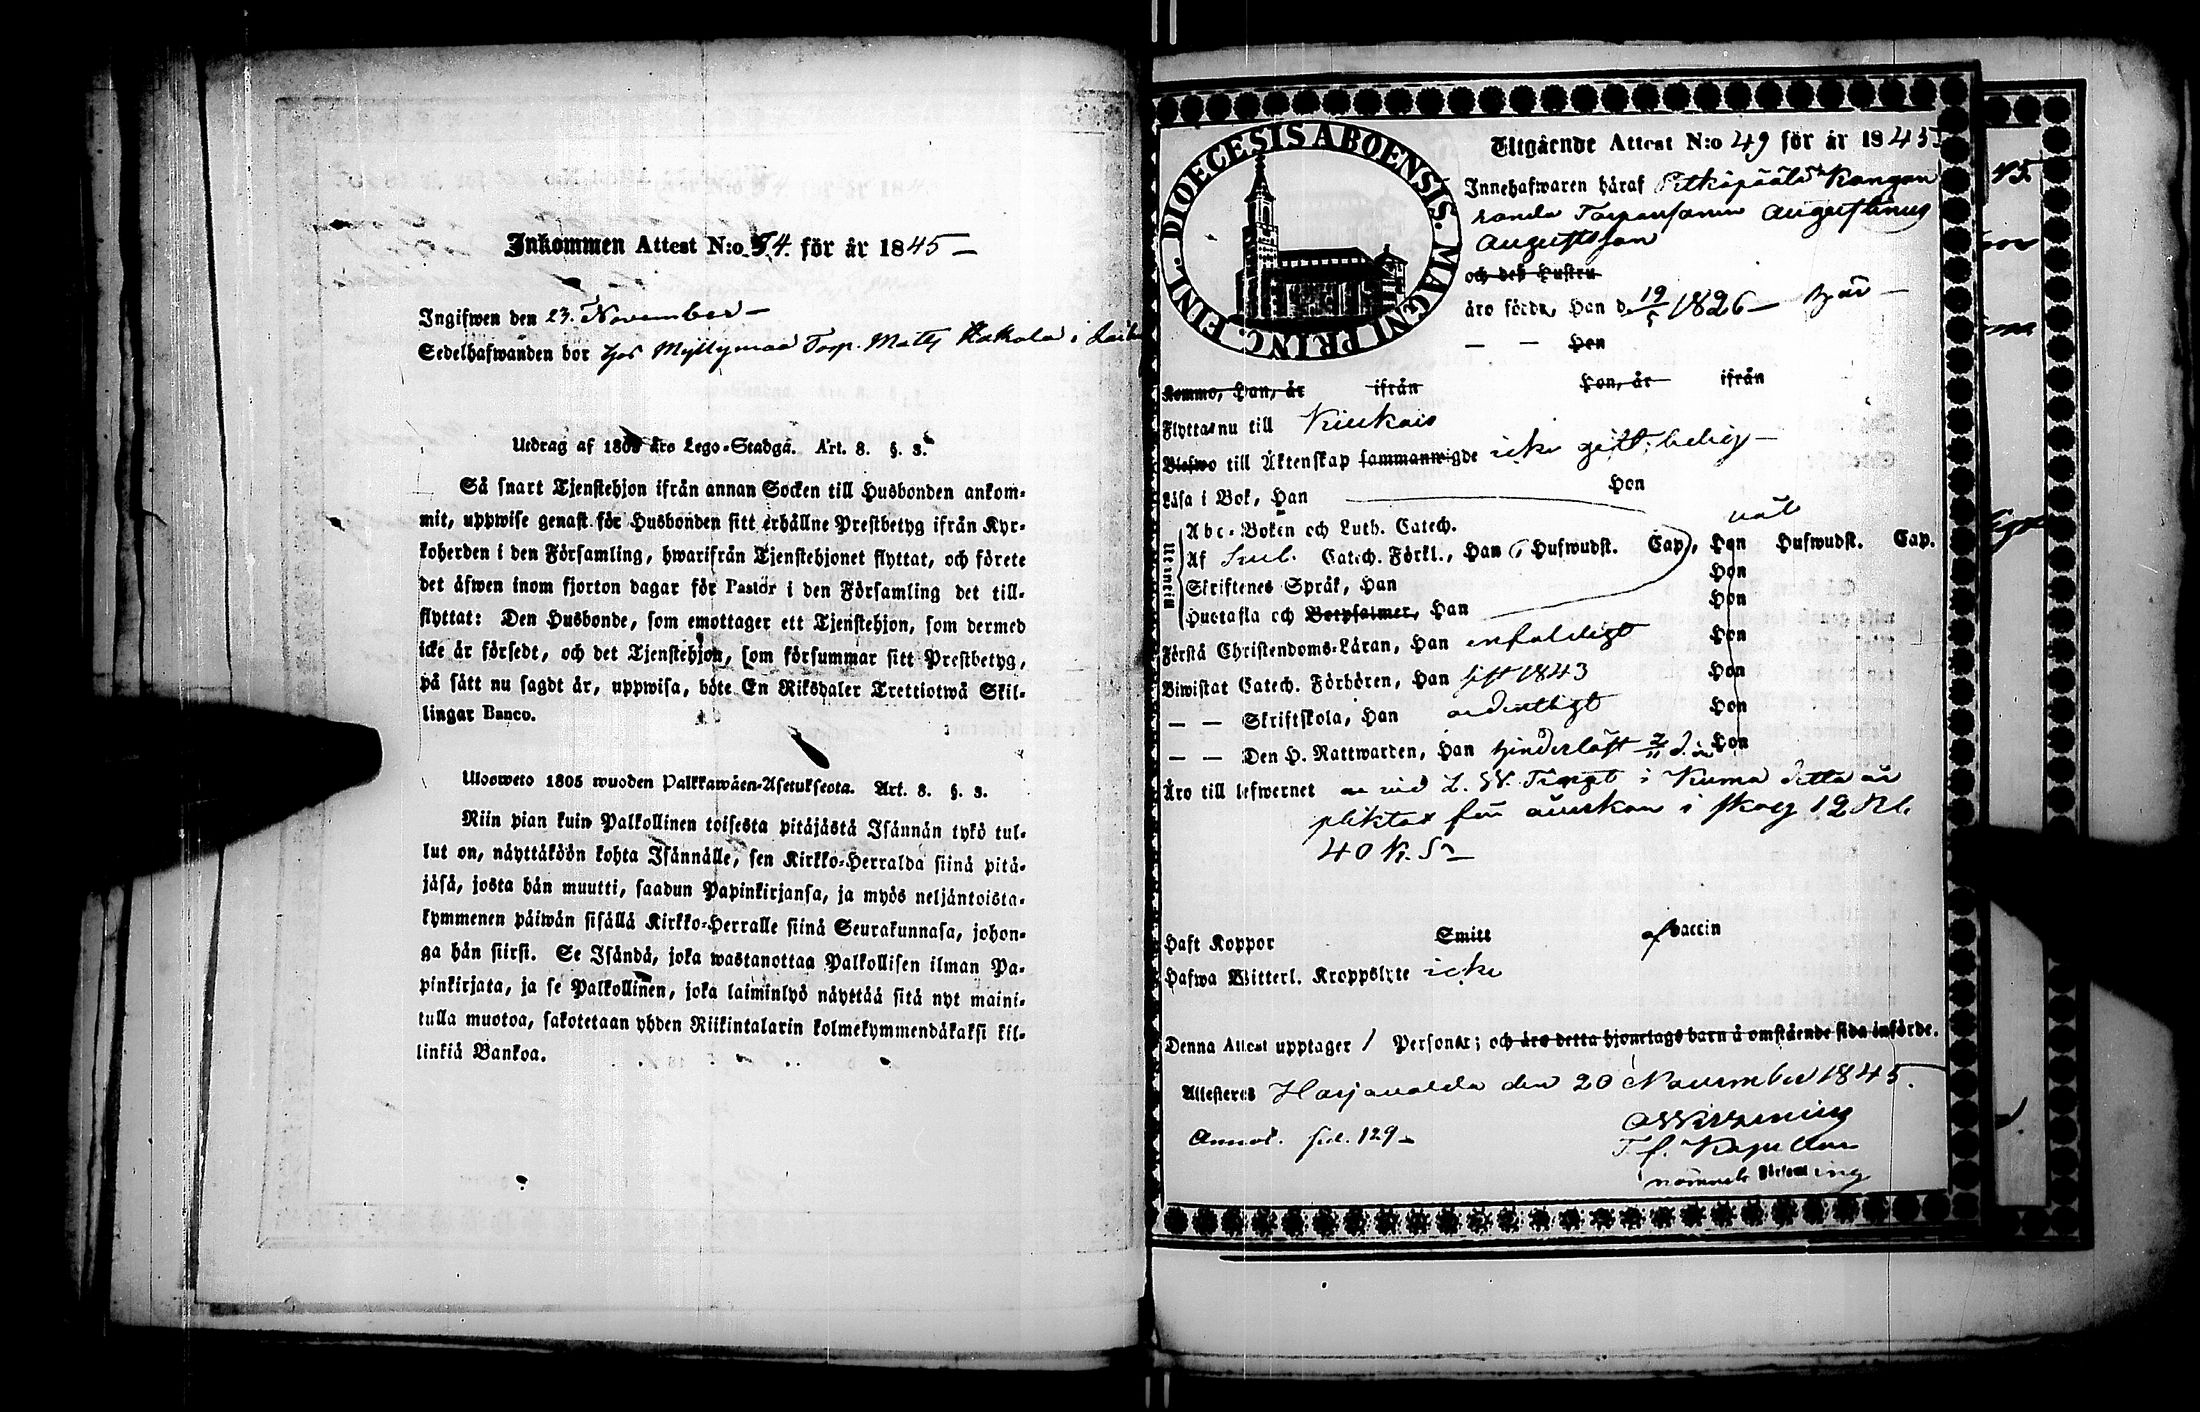 Inkommen Attest N:o 54. för år 1845 —
Ingifwen den 23. November —
Sedelhafwanden bor hos Myllymaa Torp. Matts Kakola i
Utdrag af 1805 års Lego-Stadga. Art. 8. §. 3.
Så snart Tjenstehjon ifrån annan Socken till Husbonden ankom-
mit, uppwise genast för Husbonden sitt erhållne Prestbetyg ifrån Kyr-
koherden i den Församling, hwarifrån Tjenstehjonet flyttat, och förete
det äfwen inom fjorton dagar för Pastor i den Församling det till-
flyttat: Den Husbonde, som emottager ett Tjenstehjon, som dermed
icke är försedt, och det Tjenstehjon, som försummar sitt Prestbetyg,
på sätt nu sagdt är, uppwisa, böte En Riksdaler Trettiotwå Skil-
lingar Banco.
Ulosweto 1805 wuoden Palkkawäen-Asetuksesta. Art. 8. §. 3.
Niin pian kuin Palkollinen toisesta pitäjästä Isännän tykö tul-
lut on, näyttäköön kohta Isännälle, sen Kirkko-Herralda siinä pitä-
jäsä, josta hän muutti, saadun Papinkirjansa, ja myös neljäntoista-
kymmenen päiwän sisällä Kirkko-Herralle siinä Seurakunnasa, johon-
ga hän siirsi. Se Isändä, joka wastanottaa Palkollisen ilman Pa-
pinkirjata, ja se Palkollinen, joka laiminlyö näyttää sitä nyt maini-
tulla muotoa, sakotetaan yhden Riikintalarin kolmekymmendäkaksi kil-
linkiä Bankoa.
DIOECESIS ABOENSIS. MAGNI PRINC. FINL.
Utgående Attest N:o 49 för år 1845
Innehafwaren häraf Pitkäpäälä Kangan
randa Torparsonen Augustinus
Augustsson
och des hustru
äro födde, Han d. 19/5 1826 —
— — Hon
Kommo, Han, år ifrån Hon, år ifrån
Flyttar nu till Kiukais
Blefwo till Äktenskap sammanwigde icke gift, ledig —
Läsa i Bok, Han Hon
Utantill
Abc-Boken och Luth. Catech. väl
Af Catech. Förkl., Han 6 Hufwudst. Cap., Hon Hufwudst. Cap.
Skriftenes Språk, Han Hon
Hustafla och Botpsalmer, Han Hon
Förstå Christendoms-Läran, Han enfaldigt Hon
Biwistat Catech. Förhören, Han sist 1843 Hon
— — Skriftskola, Han ordentligt Hon
— — Den H. Nattwarden, Han Hon
Äro till lefwernet vid L. W. Tinget i Kumo detta år
pliktat för åverkan i skog 12 Rbl.
40 K. Sr —
Haft Koppor Smitt af Vaccin
Hafwa Witterl. Kroppslyte icke
Denna Attest upptager 1 Personer; och äro detta hjonelags barn å omstående sida införde.
Attesteras Harjavalda den 20 November 1845.
Annot. fol. 129 —
T. f. Kapellan